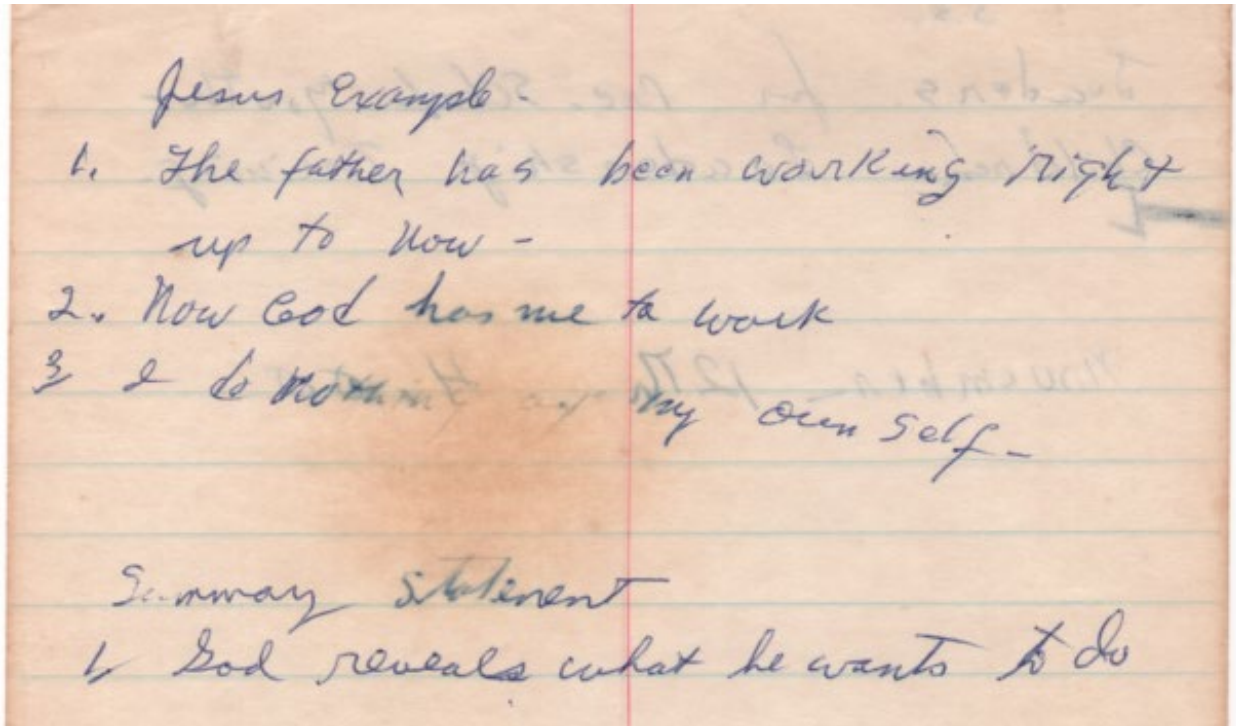 Jesus Example -
1. The father has been working right
up to now -
2. Now God has me to work
3 I do my own self -
Summary statement
1. God reveals what he wants to do